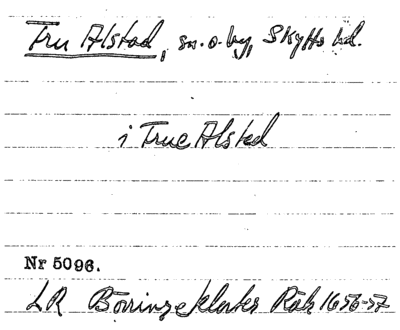 Tru Alstad, sn.o.by, Skytts hd.
i True Alsted
Nr 5096.
LR Börringekloster Räk 1656-57